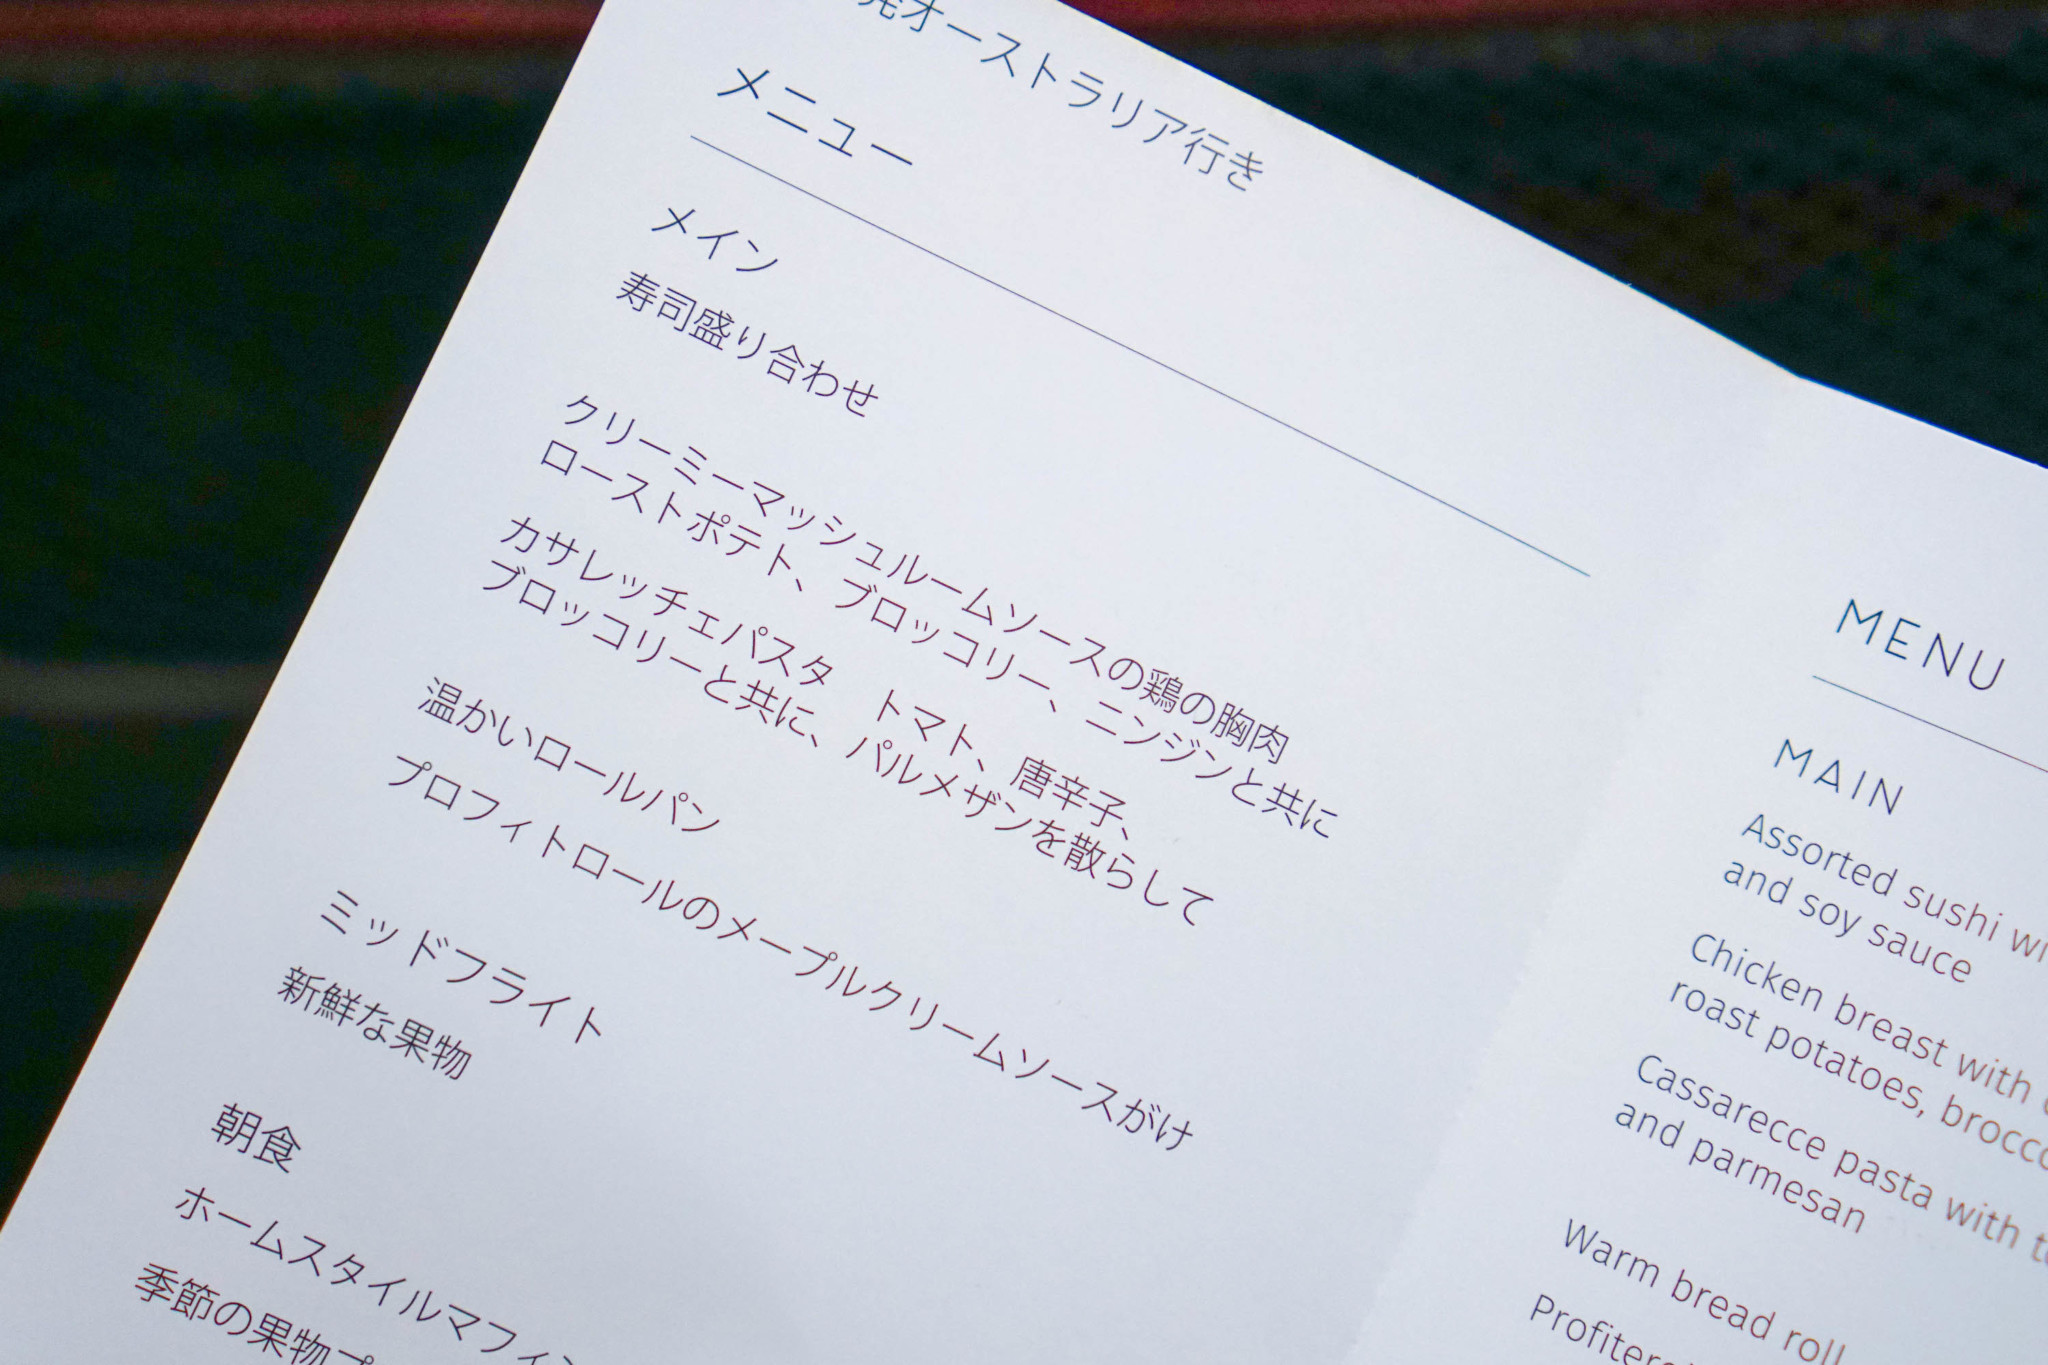 発オーストラリア行き
メニュー
メイン
寿司盛り合わせ
クリーミーマッシュルームソースの鶏の胸肉
ローストポテト、ブロッコリー、ニンジンと共に
カサレッチェパスタ　トマト、唐辛子、
ブロッコリーと共に、パルメザンを散らして
温かいロールパン
プロフィトロールのメープルクリームソースがけ
ミッドフライト
新鮮な果物
朝食
ホームスタイルマフィン
季節の果物
MENU
MAIN
Assorted sushi
and soy sauce
Chicken breast with
roast potatoes,
Cassarecce pasta with
and parmesan
Warm bread roll